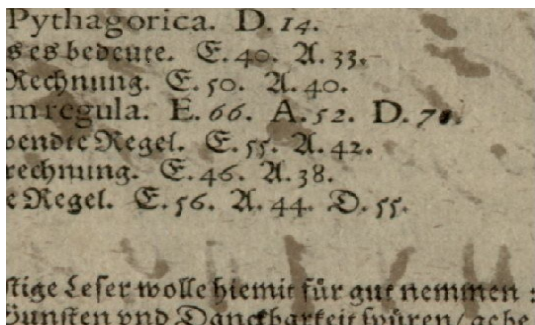 Pythagorica. D. 14.
s es bedeute. E. 40. A. 33.
Rechnung. E. 50. A. 40.
m regula. E. 66. A. 52. D. 78.
wendte Regel. E. 55. A. 42.
rechnung. E. 46. A. 38.
e Regel. E. 56. A. 44. D. 55.
stige Leser wolle hiemit für gut nemmen :
Gunsten vnd Danckbarkeit spüren / gebe